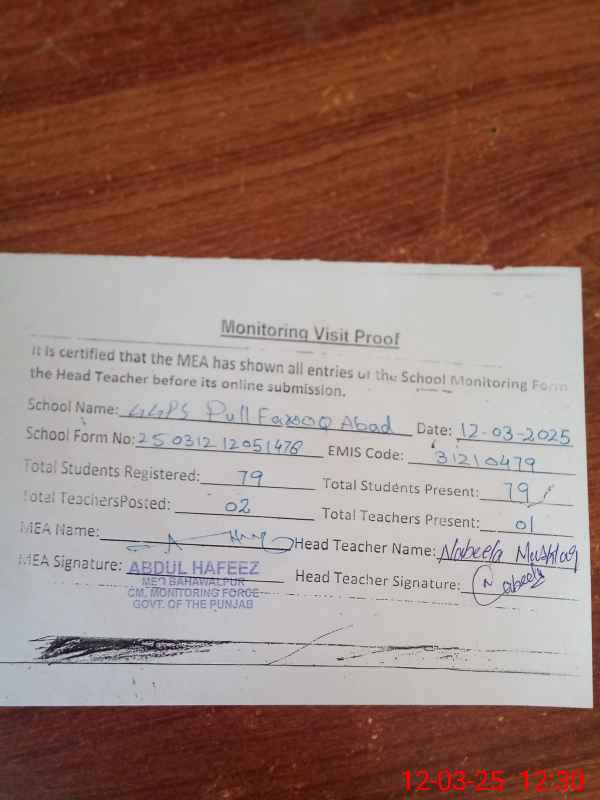 Monitoring Visit Proof
It is certified that the MEA has shown all entries of the School Monitoring Form
the Head Teacher before its online submission.
School Name: GGPS Pull Farooq Abad Date: 12-03-2025
School Form No: 25 0312 12051478 EMIS Code: 31210479
Total Students Registered: 79 Total Students Present: 79
Total TeachersPosted: 02 Total Teachers Present: 01
MEA Name: Head Teacher Name: Nabeela Mushtaq
MEA Signature: ABDUL HAFEEZ Head Teacher Signature: Nabeela
MEO BAHAWALPUR
CM, MONITORING FORCE
GOVT. OF THE PUNJAB
12-03-25 12:30